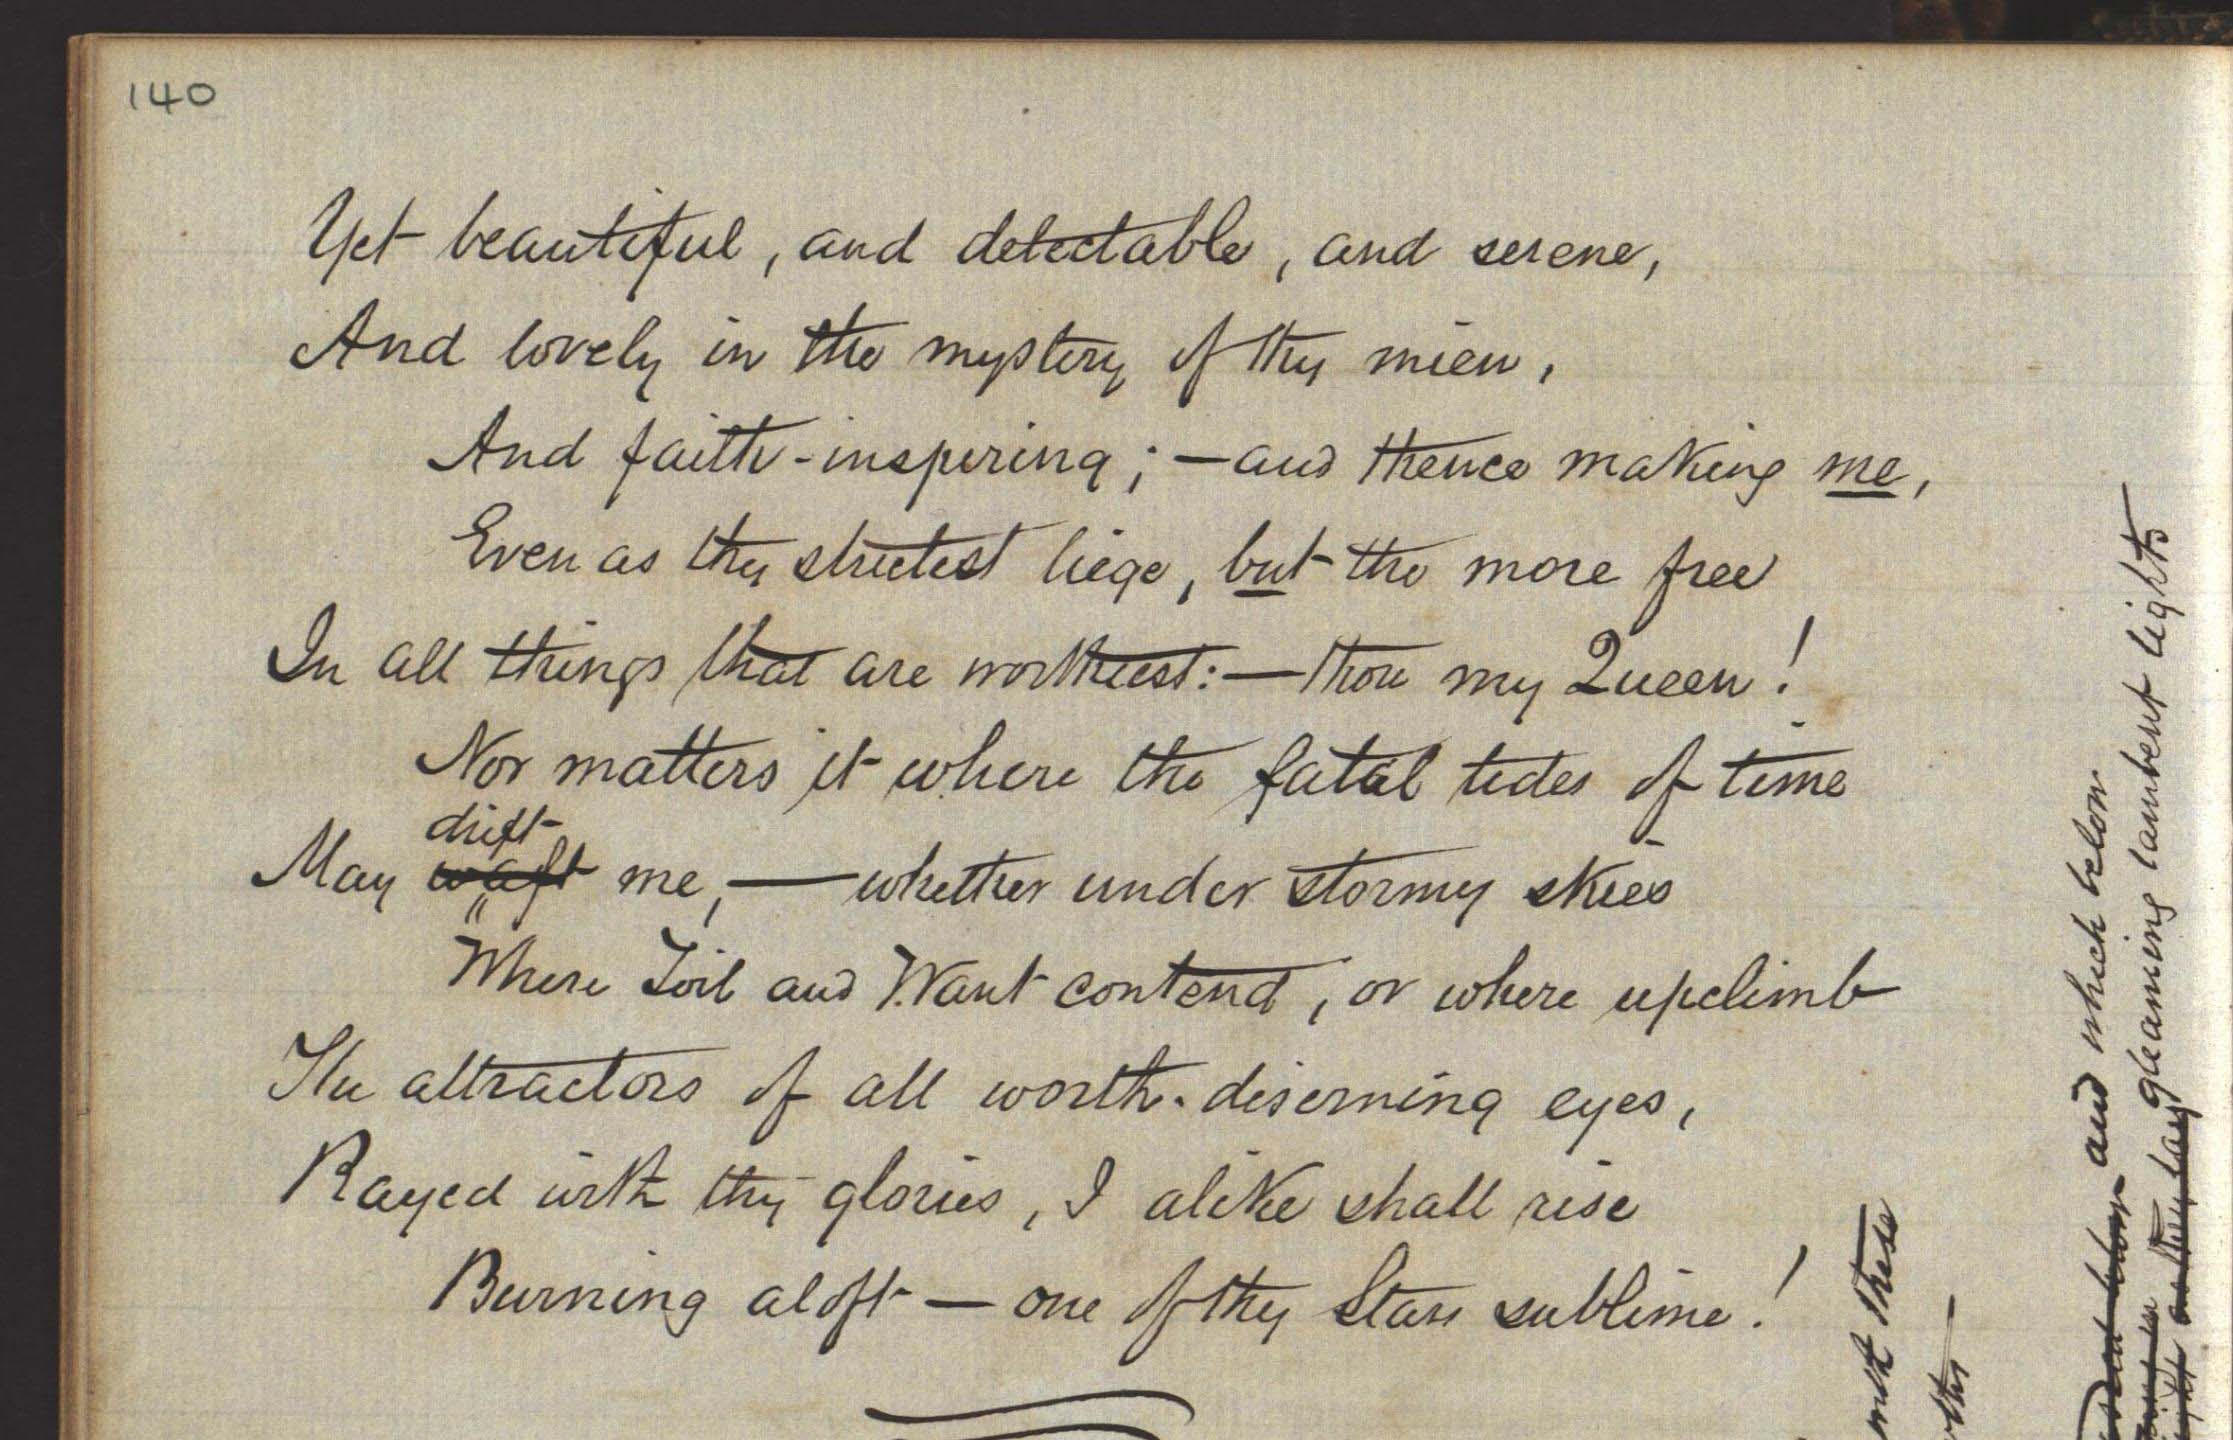 140
Yet beautiful, and delectable, and serene,
And lovely in the mystery of thy mien,
And faith-inspiring; — and thence making me,
Even as thy strictest liege, but the more free
In all things that are worthiest: — Thou my Queen!
Nor matters it where the fatal tides of time
drift
May waft me, — whether under stormy skies
Where Toil and Want contend, or where upclimb
The attractors of all worth-discerning eyes,
Rayed with thy glories, I alike shall rise
Burning aloft — one of thy Stars sublime!
these
and which below
gleaming lambent lights
as they lay